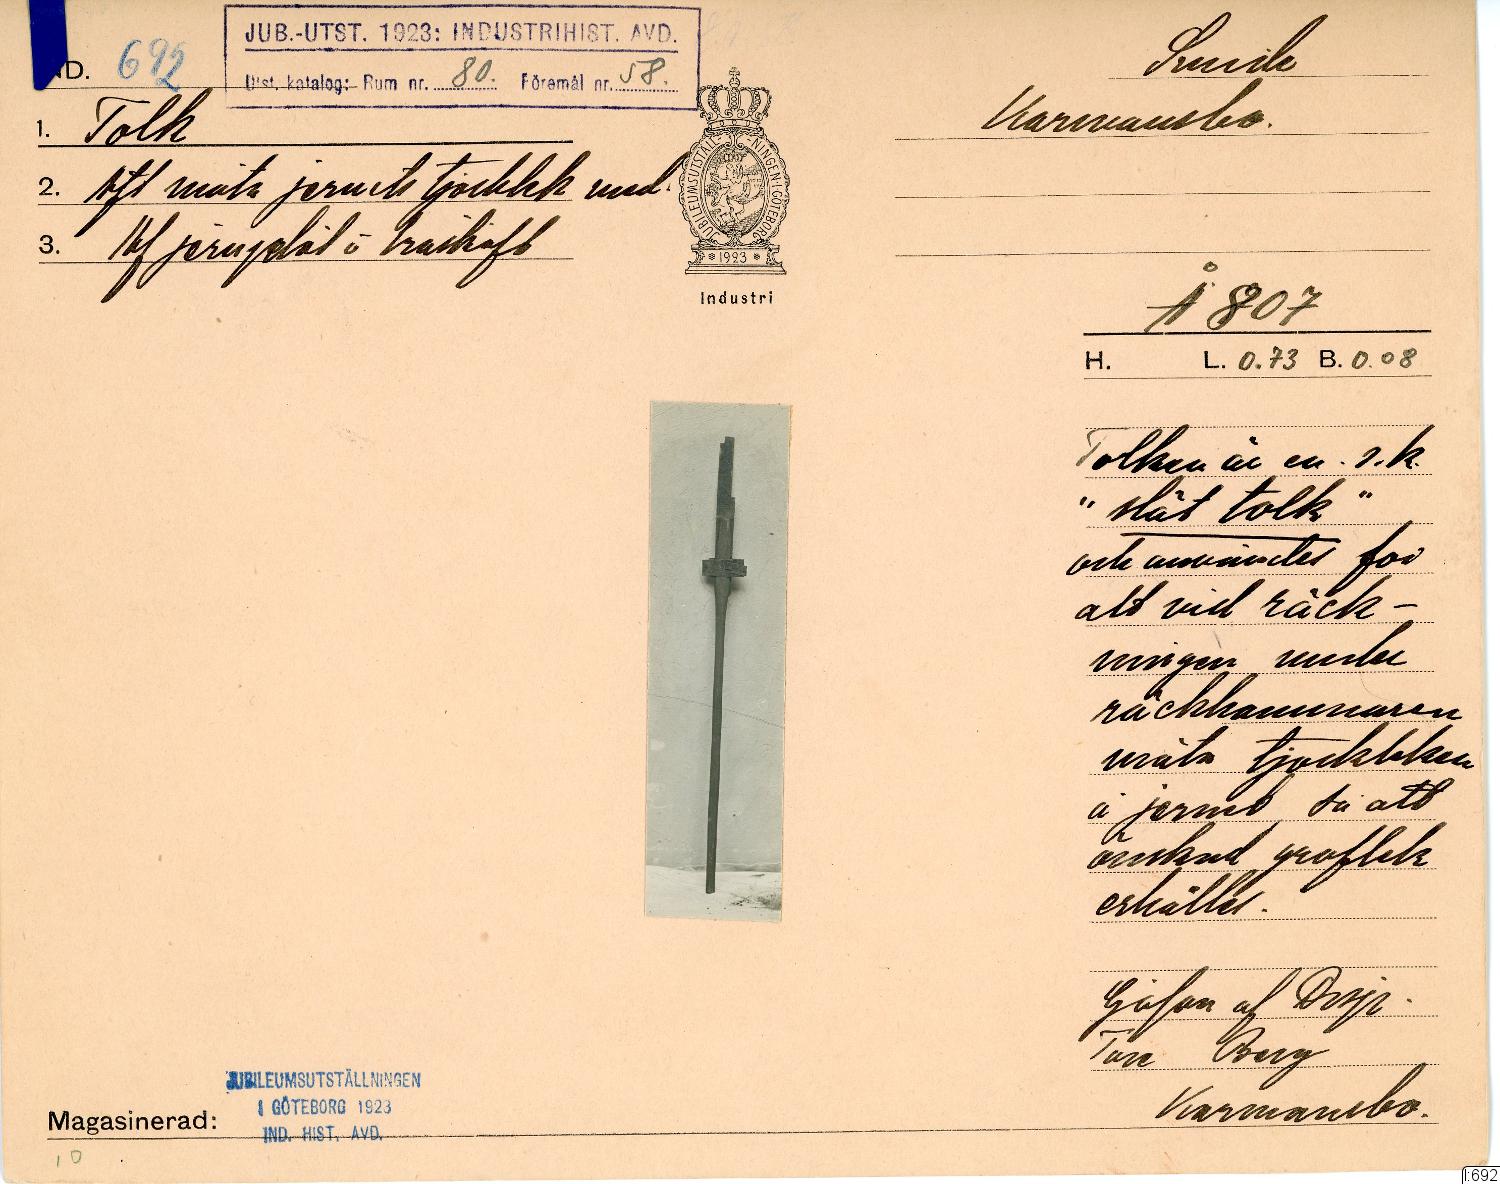 JUB.-UTST. 1923: INDUSTRIHIST. AVD.
Utst. katalog: Rum nr. 80. Föremål nr. 58.
ND. 692
1. Tolk
2. Att mäta jernets tjocklek med.
3. Af jern
JUBILEUMSUTSTÄLLNINGEN I GÖTEBORG
* 1923 *
Industri
Smide
Karmansbo.
Å 807
H. L. 0.73 B. 0.08
Tolken är en s.k.
"slät tolk"
och användes för
att vid räck-
ningen under
räckhammaren
mäta tjockleken
å jernet så att
önskad groflek
erhålles.
Gåfva af Disp.
Ture Berg
Karmansbo.
JUBILEUMSUTSTÄLLNINGEN
I GÖTEBORG 1923
IND. HIST. AVD.
Magasinerad:
10
I:692